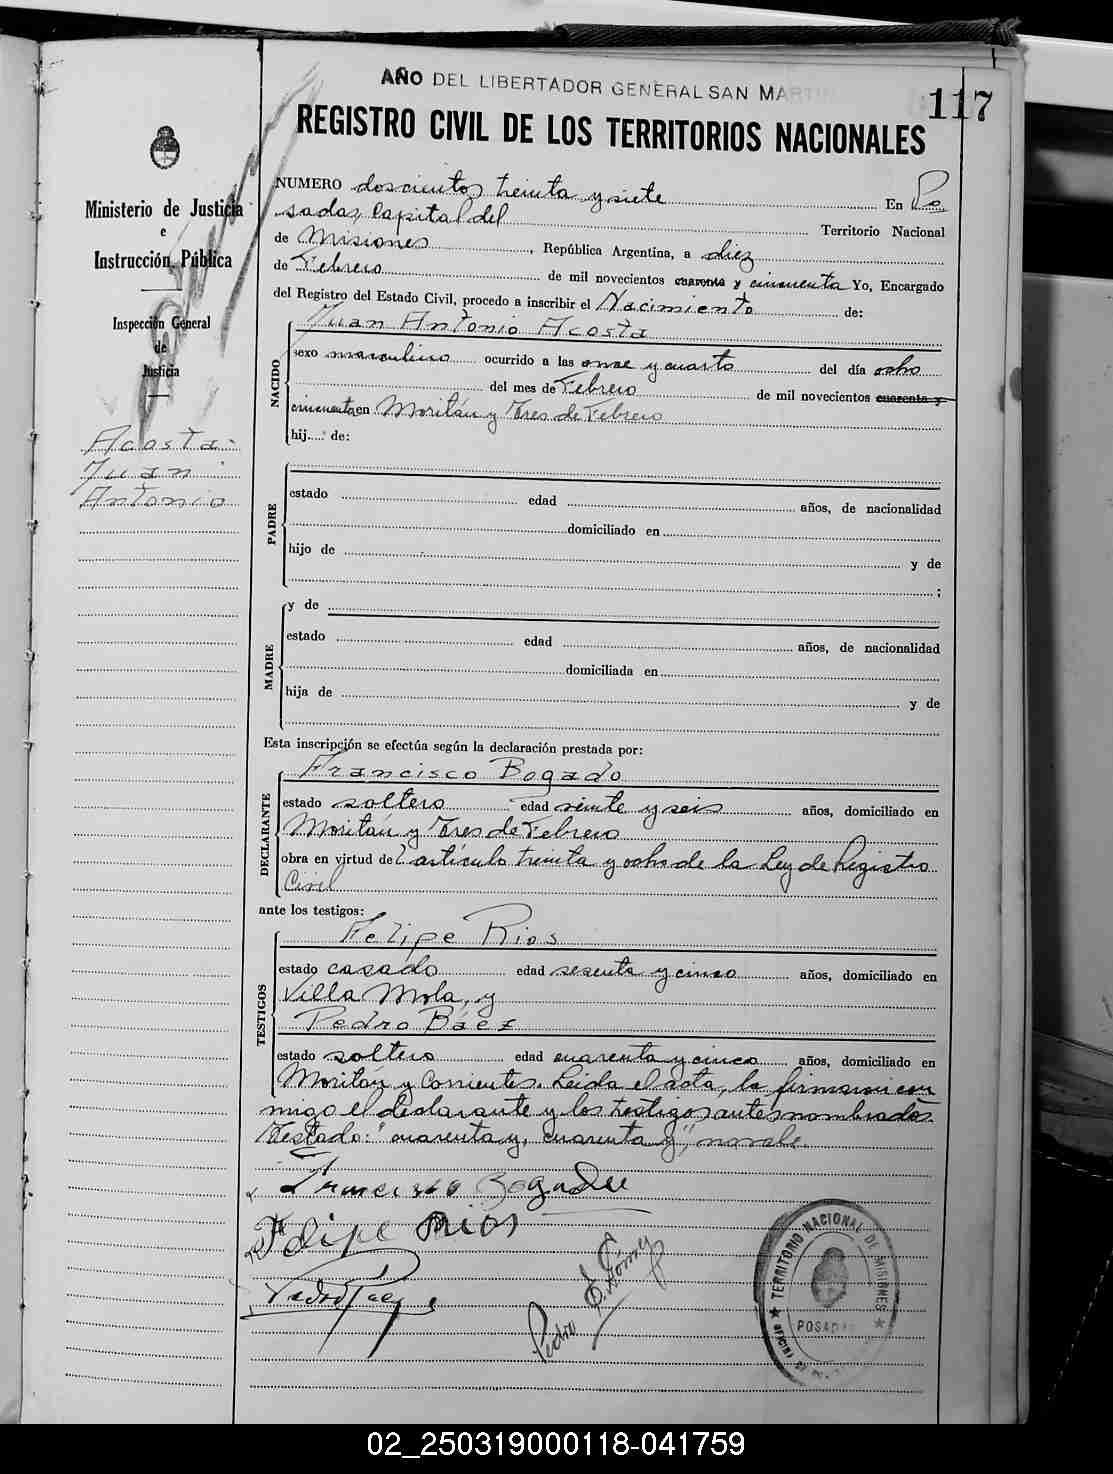 AÑO DEL LIBERTADOR GENERAL SAN MARTIN
117
REGISTRO CIVIL DE LOS TERRITORIOS NACIONALES
Ministerio de Justicia
e
Instrucción Pública
Inspección General
de
Justicia
Acosta
Juan
Antonio
NUMERO doscientos treinta y siete En Po
sadas, Capital del Territorio Nacional
de Misiones, República Argentina, a diez
de Febrero de mil novecientos cuarenta y cincuenta Yo, Encargado
del Registro del Estado Civil, procedo a inscribir el Nacimiento de:
NACIDO
Juan Antonio Acosta
sexo masculino ocurrido a las once y cuarto del día ocho
del mes de Febrero de mil novecientos cuarenta y
cincuenta en Moritán y Tres de Febrero
hij... de:
PADRE
estado edad años, de nacionalidad
domiciliado en
hijo de y de
;
MADRE
y de
estado edad años, de nacionalidad
domiciliada en
hija de y de
Esta inscripción se efectúa según la declaración prestada por:
DECLARANTE
Francisco Bogado
estado soltero edad veinte y seis años, domiciliado en
Moritán y Tres de Febrero
obra en virtud del artículo treinta y ocho de la Ley de Registro
Civil
ante los testigos:
TESTIGOS
Felipe Rios
estado casado edad sesenta y cinco años, domiciliado en
Villa Mola, y
Pedro Báez
estado soltero edad cuarenta y cinco años, domiciliado en
Moritán y Corrientes. Leída el acta, la firmaron con
migo el declarante y los testigos antes nombrados.
Testado: "cuarenta y, cuarenta y", no vale.
Francisco Bogado
Felipe Rios
Pedro Baez
Pedro E. Gómez
TERRITORIO NACIONAL DE MISIONES
POSADAS
02_250319000118-041759